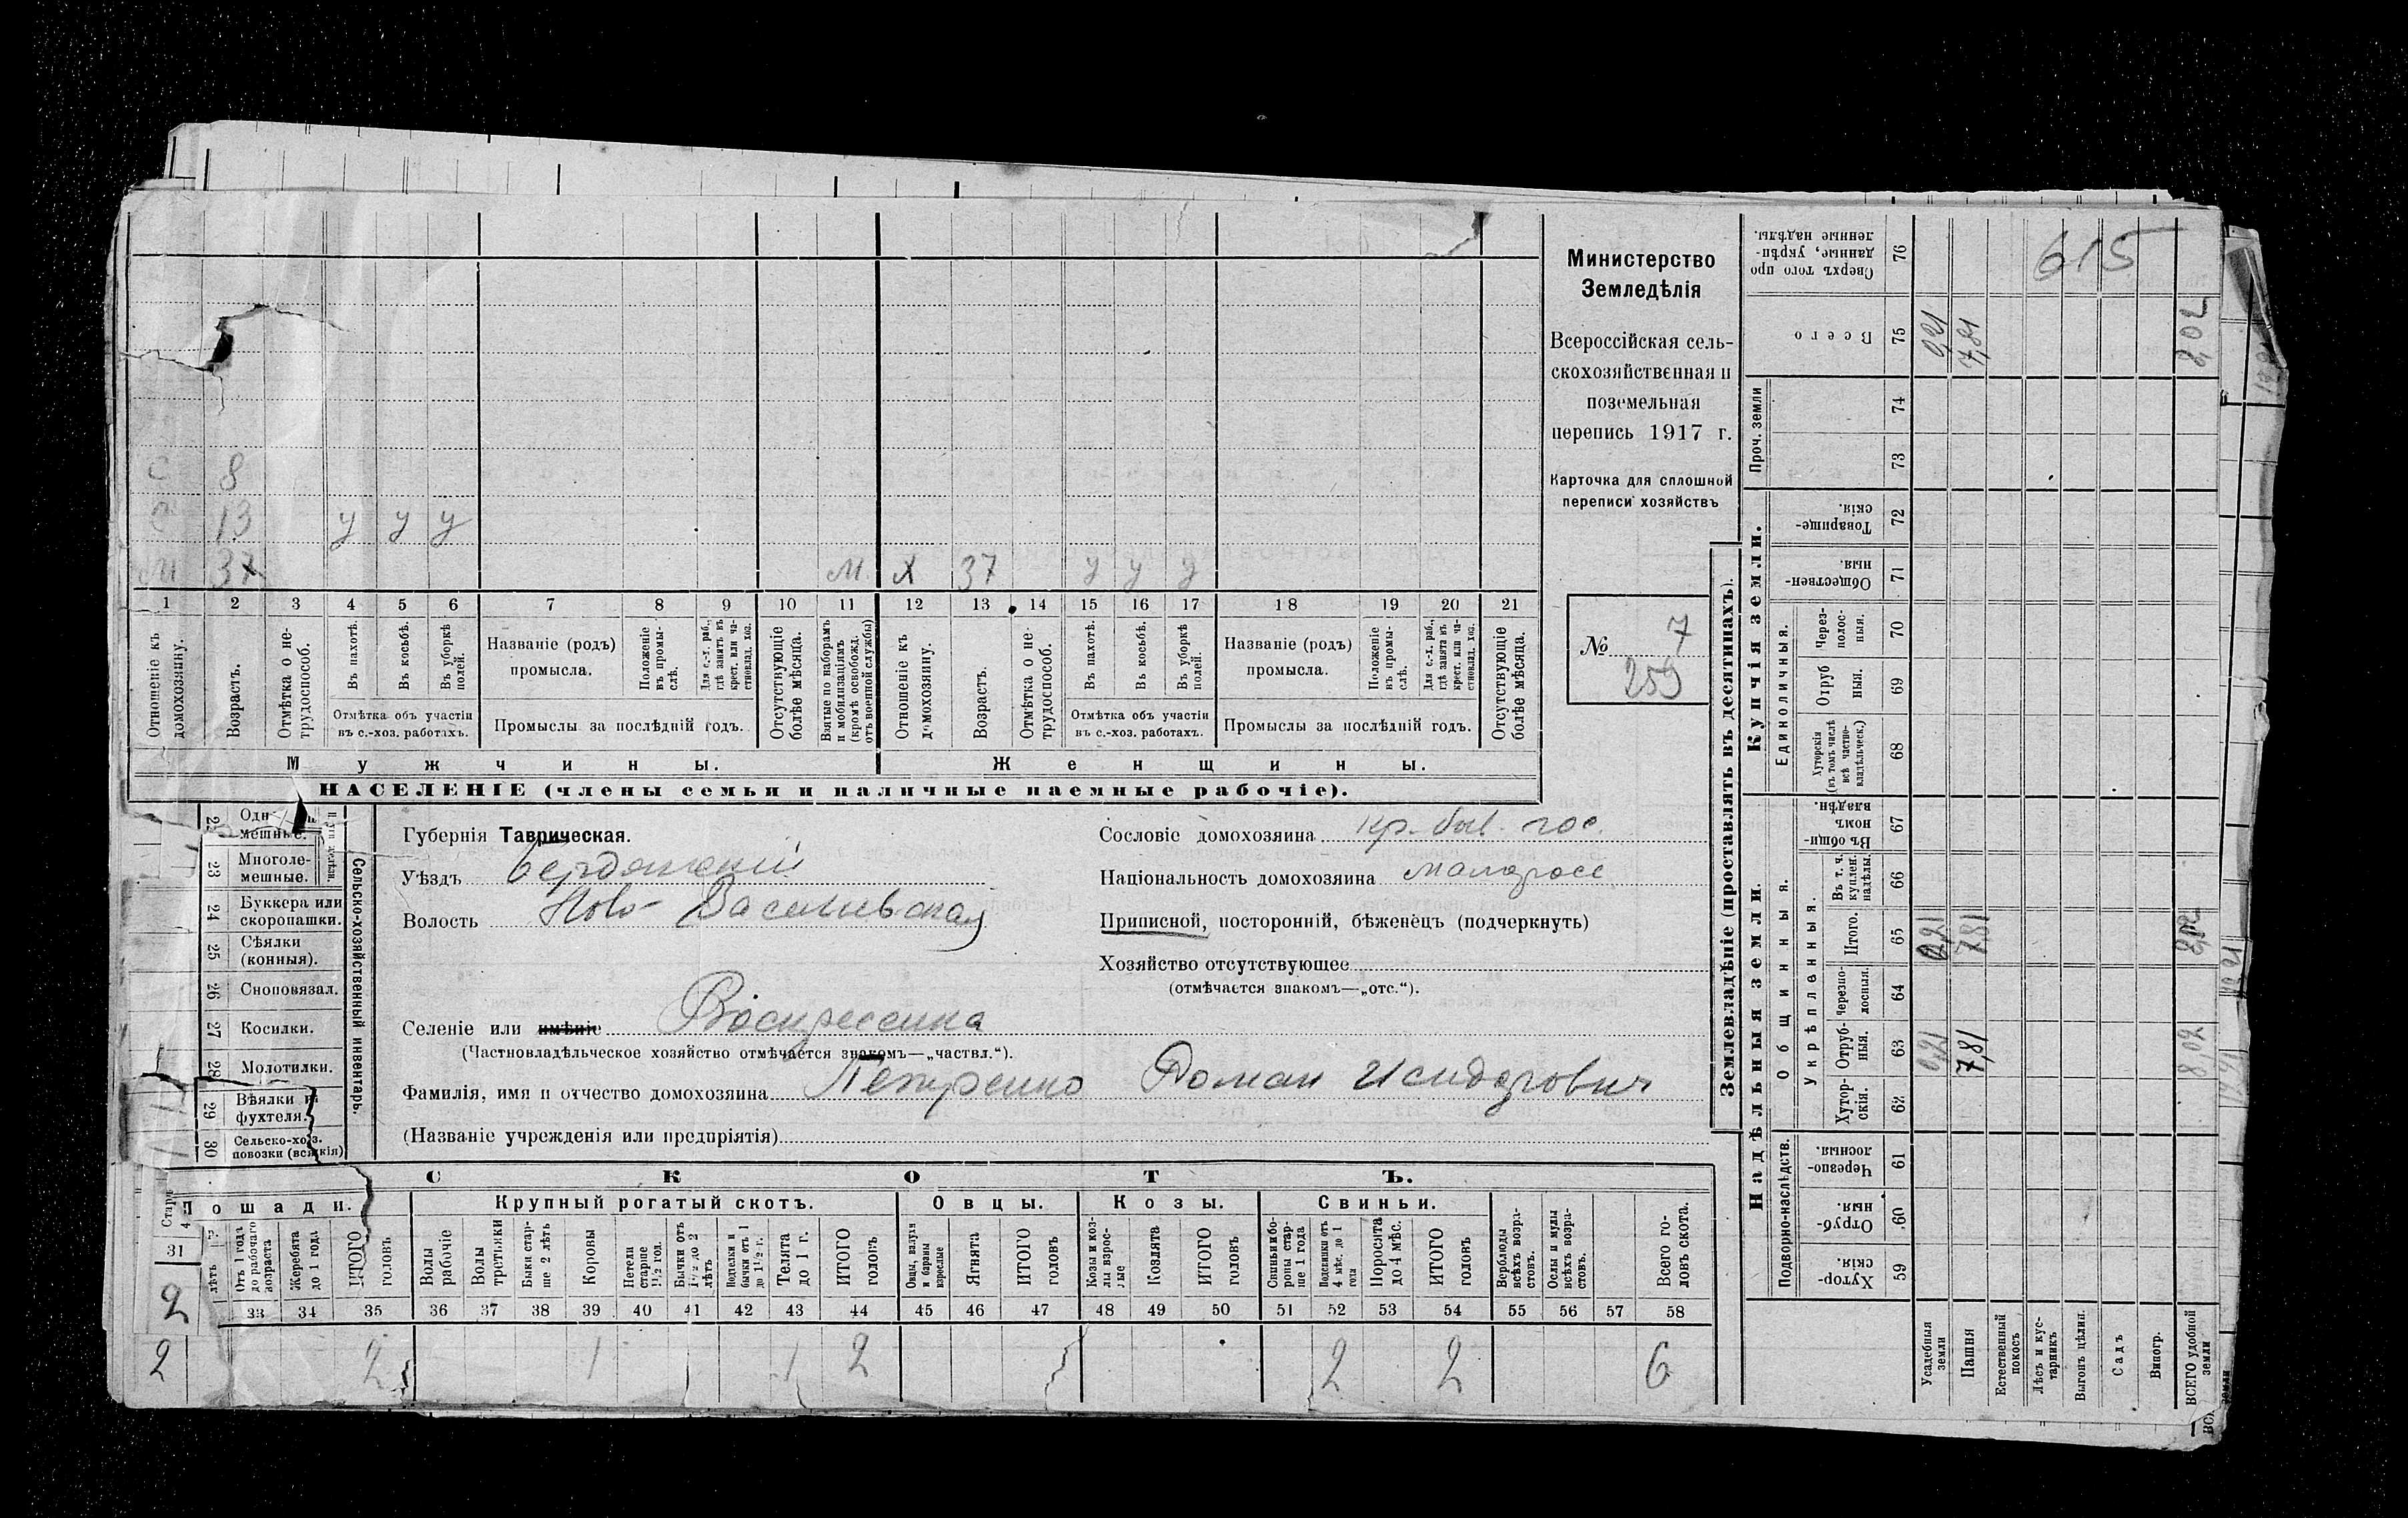 С 8
С 13 у у у
М 37 М. Х 37 у у у
1 2 3 4 5 6 7 8 9 10 11 12 13 14 15 16 17 18 19 20 21
Отношеніе къ домохозяину.
Возрастъ.
Отмѣтка о не-трудоспособ.
Въ пахотѣ.
Въ косьбѣ.
Въ уборкѣ полей.
Отмѣтка объ участіи
въ с.-хоз. работахъ.
Названіе (родъ)
промысла.
Положеніе въ промы-слѣ.
Для с.-х. раб., гдѣ занятъ въ крест. или ча-стновлад. хоз.
Промыслы за послѣдній годъ.
Отсутствующіе болѣе мѣсяца.
Взятые по наборамъ и мобилизаціямъ (кромѣ освобожд. отъ военной службы)
Отношеніе къ домохозяину.
Возрастъ.
Отмѣтка о не-трудоспособ.
Въ пахотѣ.
Въ косьбѣ.
Въ уборкѣ полей.
Отмѣтка объ участіи
въ с.-хоз. работахъ.
Названіе (родъ)
промысла.
Положеніе въ промы-слѣ.
Для с.-х. раб., гдѣ занята въ крест. или ча-стновлад. хоз.
Промыслы за послѣдній годъ.
Отсутствующіе болѣе мѣсяца.
Мужчины. Женщины.
НАСЕЛЕНІЕ (члены семьи и наличные наемные рабочіе).
Министерство
Земледѣлія
Всероссійская сель-
скохозяйственная и
поземельная
перепись 1917 г.
Карточка для сплошной
переписи хозяйствъ
№ 7
259
Губернія Таврическая.
Уѣздъ Бердянскій
Волость Ново-Васильевская
Селеніе или имѣніе Воскресенка
(Частновладѣльческое хозяйство отмѣчается знакомъ—„частвл.“).
Фамилія, имя и отчество домохозяина Петренко Роман Исидорович
(Названіе учрежденія или предпріятія)
Сословіе домохозяина кр. быв. гос.
Національность домохозяина малоросс
Приписной, посторонній, бѣженецъ (подчеркнуть)
Хозяйство отсутствующее
(отмѣчается знакомъ—„отс.“).
Сельско-хозяйственный инвентарь.
мешные.
23 Многоле-мешные.
24 Буккера или скоропашки.
25 Сѣялки (конныя).
26 Сноповязал.
27 Косилки.
28 Молотилки.
29 Вѣялки и фухтеля.
30 Сельско-хоз. повозки (всякія)
СКОТЪ.
Лошади. Крупный рогатый скотъ. Овцы. Козы. Свиньи.
Отъ 1 года до рабочаго возраста
Жеребята до 1 года
ИТОГО головъ
Волы рабочіе
Волы третьяки
Быки стар-ше 2 лѣтъ
Коровы
Нетели старше 1½ год.
Бычки отъ 1½ до 2 лѣтъ
Подтелки и бычки отъ 1 до 1½ г.
Телята до 1 г.
ИТОГО головъ
Овцы, валухи и бараны взрослые
Ягнята
ИТОГО головъ
Козы и коз-лы взрос-лые
Козлята
ИТОГО головъ
Свиньи и бо-ровы стар-ше 1 года
Подсвинки отъ 4 мѣс. до 1 года
Поросята до 4 мѣс.
ИТОГО головъ
Верблюды всѣхъ возра-стовъ.
Ослы и мулы всѣхъ возра-стовъ.
Всего го-ловъ скота.
31 33 34 35 36 37 38 39 40 41 42 43 44 45 46 47 48 49 50 51 52 53 54 55 56 57 58
2
2 2 1 1 2 2 2 6
Землевладѣніе (проставлять въ десятинахъ).
Надѣльныя земли. Купчія земли. Проч. земли
Подворно-наслѣдств.
Общинныя.
Укрѣпленныя.
Единоличныя.
59 Хутор-скія.
60 Отруб-ныя.
61 Черезпо-лосныя.
62 Хутор-скія.
63 Отруб-ныя. 0,21 7,81 8,02
64 Черезпо-лосныя.
65 Итого. 0,21 7,81 8,02
66 Въ т. ч. куплен. надѣлы.
67 Въ общи-номъ владѣн.
68 Хуторскія (въ томъ числѣ всѣ частно-владѣльческ.)
69 Отруб ныя.
70 Через-полос-ныя.
71 Обществен-ныя.
72 Товарище-скія.
73
74
75 Всего 0,21 7,81 8,02
76 Сверхъ того про данные, укрѣп-ленные надѣлы.
615
Усадебныя земли
Пашня
Естественный покосъ
Лѣсъ и кус-тарникъ
Выгонъ цѣлин.
Садъ
Виногр.
ВСЕГО удобной земли